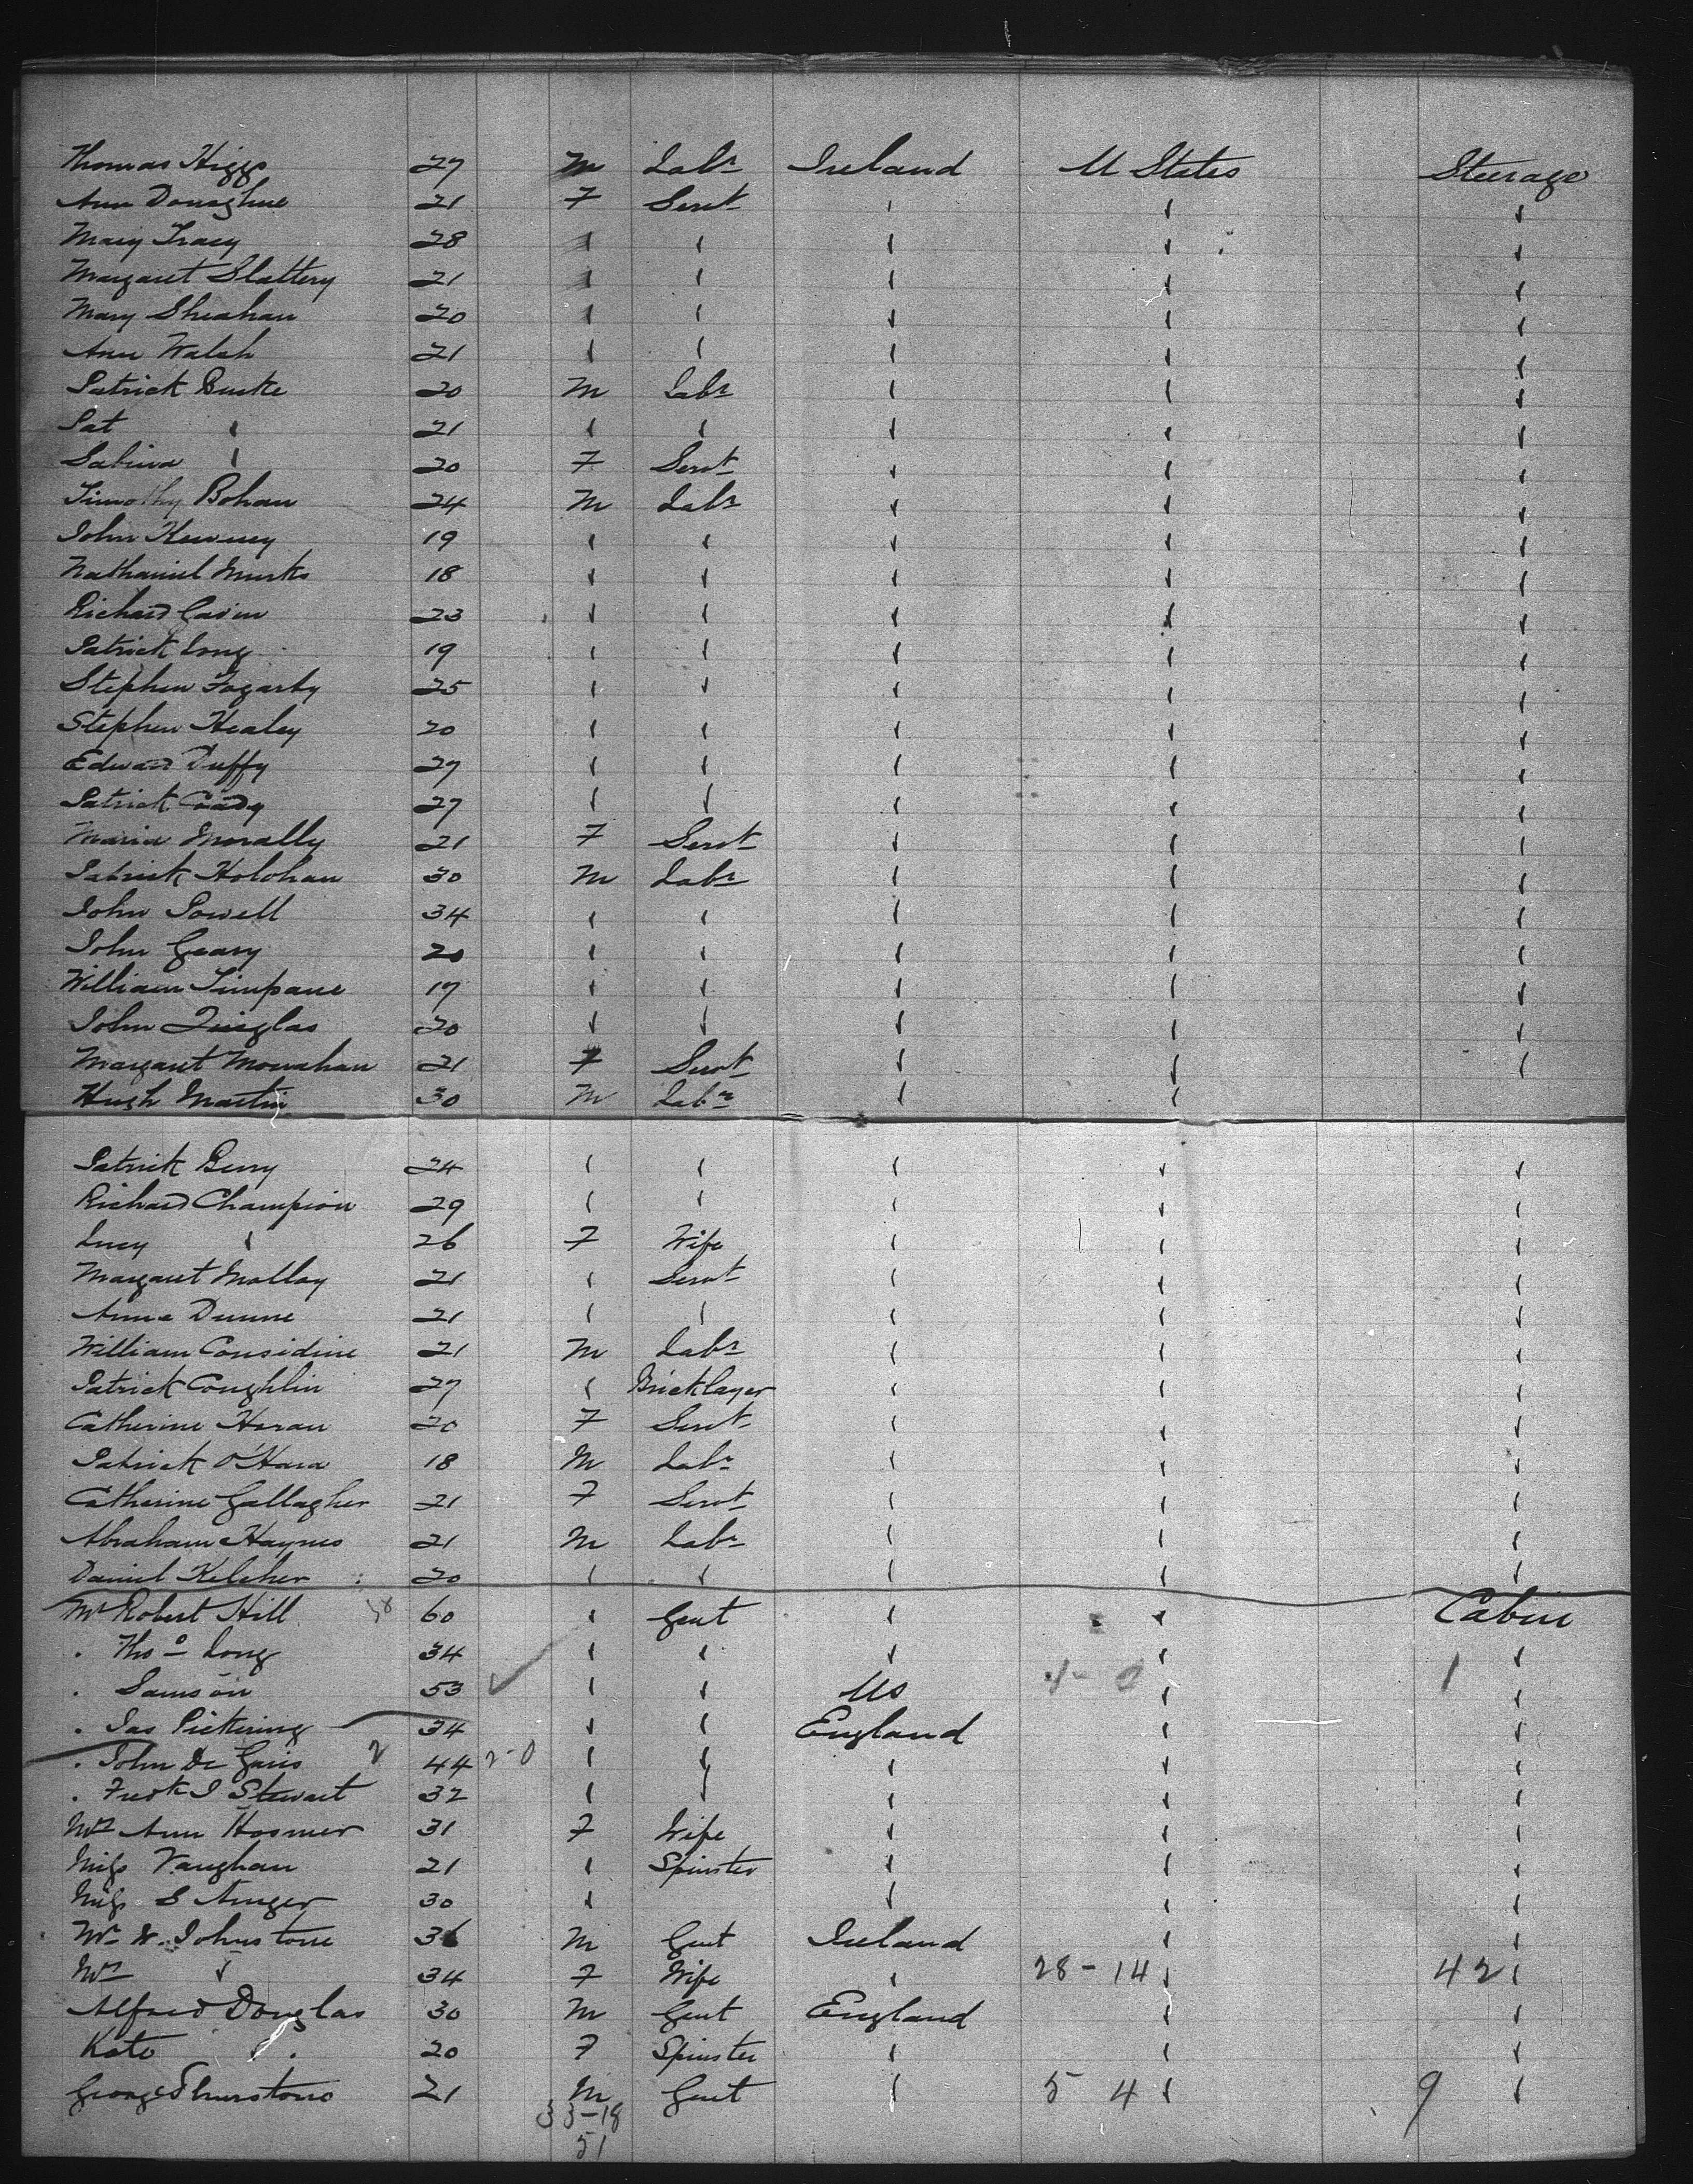 Thomas Higgs 27 M Labr Ireland U States Steerage
Ann Donaghue 21 F Servt
Mary Tracy 28
Margaret Slattery 21
Mary Sheahan 20
Ann Walsh 21
Patrick Burke 20 M Labr
Pat 21
Sabina 20 F Servt
Timothy Bohan 24 M Labr
John 19
Nathaniel 18
Richard 23
Patrick Long 19
Stephen Fogarty 25
Stephen Healey 20
Edward Duffy 27
Patrick Coady 27
Maria Morally 21 F Servt
Patrick Holohan 30 M Labr
John Powell 34
John Geary 20
William Timpane 17
John Quiglas 20
Margaret Monahan 21 F Servt
Hugh Martin 30 M Labr
Patrick Berry 24
Richard Champion 29
Lucy 26 F Wife
Margaret Malloy 21 Servt
Anne Dunne 21
William Considine 21 M Labr
Patrick Coughlin 27 Bricklayer
Catherine Horan 20 F Servt
Patrick O'Hara 18 M Labr
Catherine Gallagher 21 F Servt
Abraham Haynes 21 M Labr
Daniel Keleher 20
Mr Robert Hill 60 Gent Cabin
Thos Long 34
Samson 53 US 1
Jas Pickering 34 England
John De Garis 2 44 2-0
Fredk J Stewart 32
Mrs Ann Hosmer 31 F Wife
Miss Vaughan 21 Spinster
Miss S Anger 30
Mr W. Johnstone 36 M Gent Ireland
Mrs 34 F Wife 28-14 42
Alfred Douglas 30 M Gent England
Kate 20 F Spinster
George Thurstons 21 M Gent 5 4 9
33-18
51